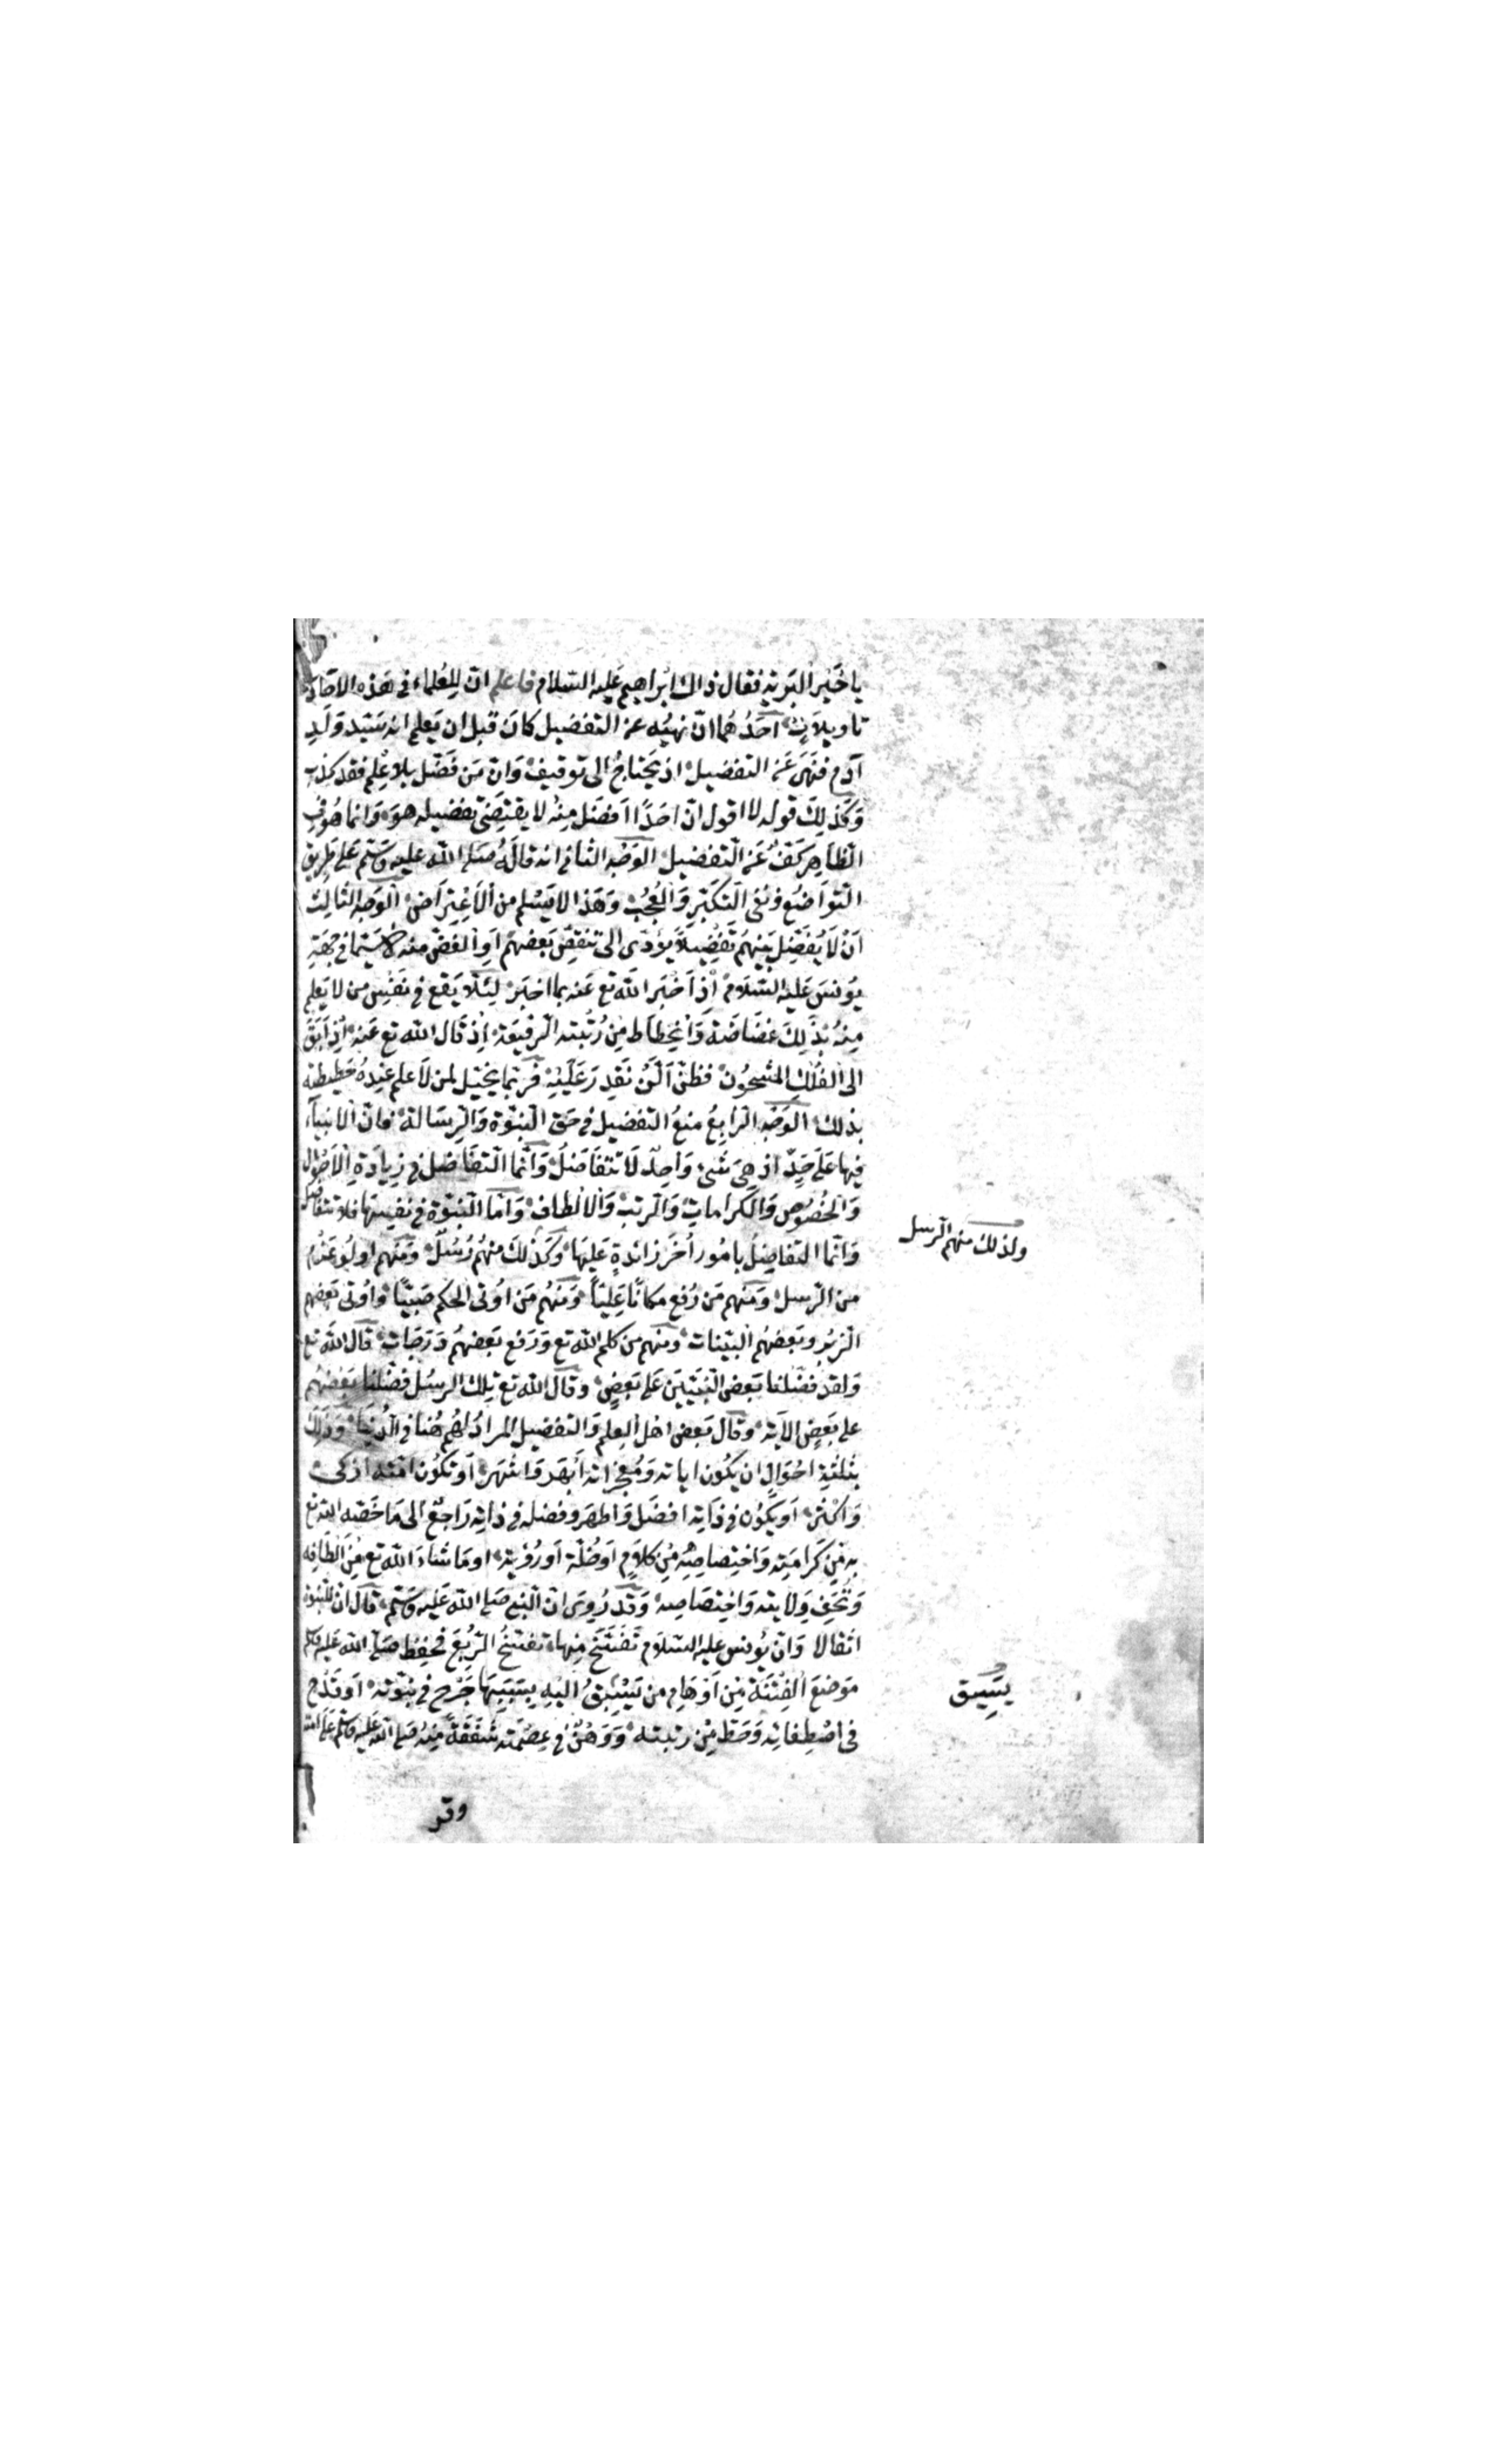 يا خير البرية فقال ذاك ابراهيم عليه السلام فاعلم ان للعلماء في هذه الاحاديث
تاويلات احدهما ان نهيه عن التفضيل كان قبل ان يعلم انه سيد ولد
آدم فنهى عن التفضيل اذ يحتاج الى توقيف وان من فضل بلا علم فقد كذب
وكذلك قوله لا اقول ان احدا افضل منه لا يقتضى تفضيله هو وانما هو في
الظاهر كف عن التفضيل الوجه الثاني انه قاله صلى الله عليه وسلم على طريق
التواضع ونفى التكبر والعجب وهذا لا يسلم من الاعتراض الوجه الثالث
ان لا يفضل بينهم تفضيلا يؤدى الى تنقص بعضهم او الغض منه لاسيما في جهة
يونس عليه السلام اذ اخبر الله تع عنه بما اخبر لئلا يقع في نفس من لا يعلم
منه بذلك غضاضة وانحطاط من رتبته الرفيعة اذ قال الله تع عنه اذ ابق
الى الفلك المشحون فظن ان لن نقدر عليه فربما يخيل لمن لا علم عنده حطيطته
بذلك الوجه الرابع منع التفضيل في حق النبوة والرسالة فان الانبياء
فيها على حد اذ هي شئ واحد لا تتفاضل وانما التفاضل في زيادة الاحوال
والخصوص والكرامات والرتب والالطاف واما النبوة في نفسها فلا تتفاضل
وانما التفاضل بامور اخر زائدة عليها وكذلك منهم رسل ومنهم اولو عزم
ولذلك منهم الرسل
من الرسل ومنهم من رفع مكانا عليا ومنهم من اوتى الحكم صبيا واوتى بعضهم
الزبر وبعضهم البينات ومنهم من كلم الله تع ورفع بعضهم درجات قال الله تع
ولقد فضلنا بعض النبيين على بعض وقال الله تع تلك الرسل فضلنا بعضهم
على بعض الاية وقال بعض اهل العلم والتفضيل المراد لهم هنا في الدنيا وذلك
بثلثة احوال ان يكون اياته ومعجزاته ابهر واشهر او تكون امته ازكى
واكثر او يكون في ذاته افضل واطهر وفضله في ذاته راجع الى ما خصه الله تع
به من كرامته واختصاصه من كلام او خلة او رؤية او ما شاء الله تع من الطافه
وتحف ولايته واختصاصه وقد روى ان النبي صلى الله عليه وسلم قال ان للنبوة
اثقالا وان يونس عليه السلام تفسخ منها تفسخ الربع فحفظ صلى الله عليه وسلم
موضع الفتنة من اوهام من يسبق اليه بسببها جرح في نبوته او قدح
يسبق
في اصطفائه وحط من رتبته ووهن في عصمته شفقة منه صلى الله عليه وسلم على امته
وقد